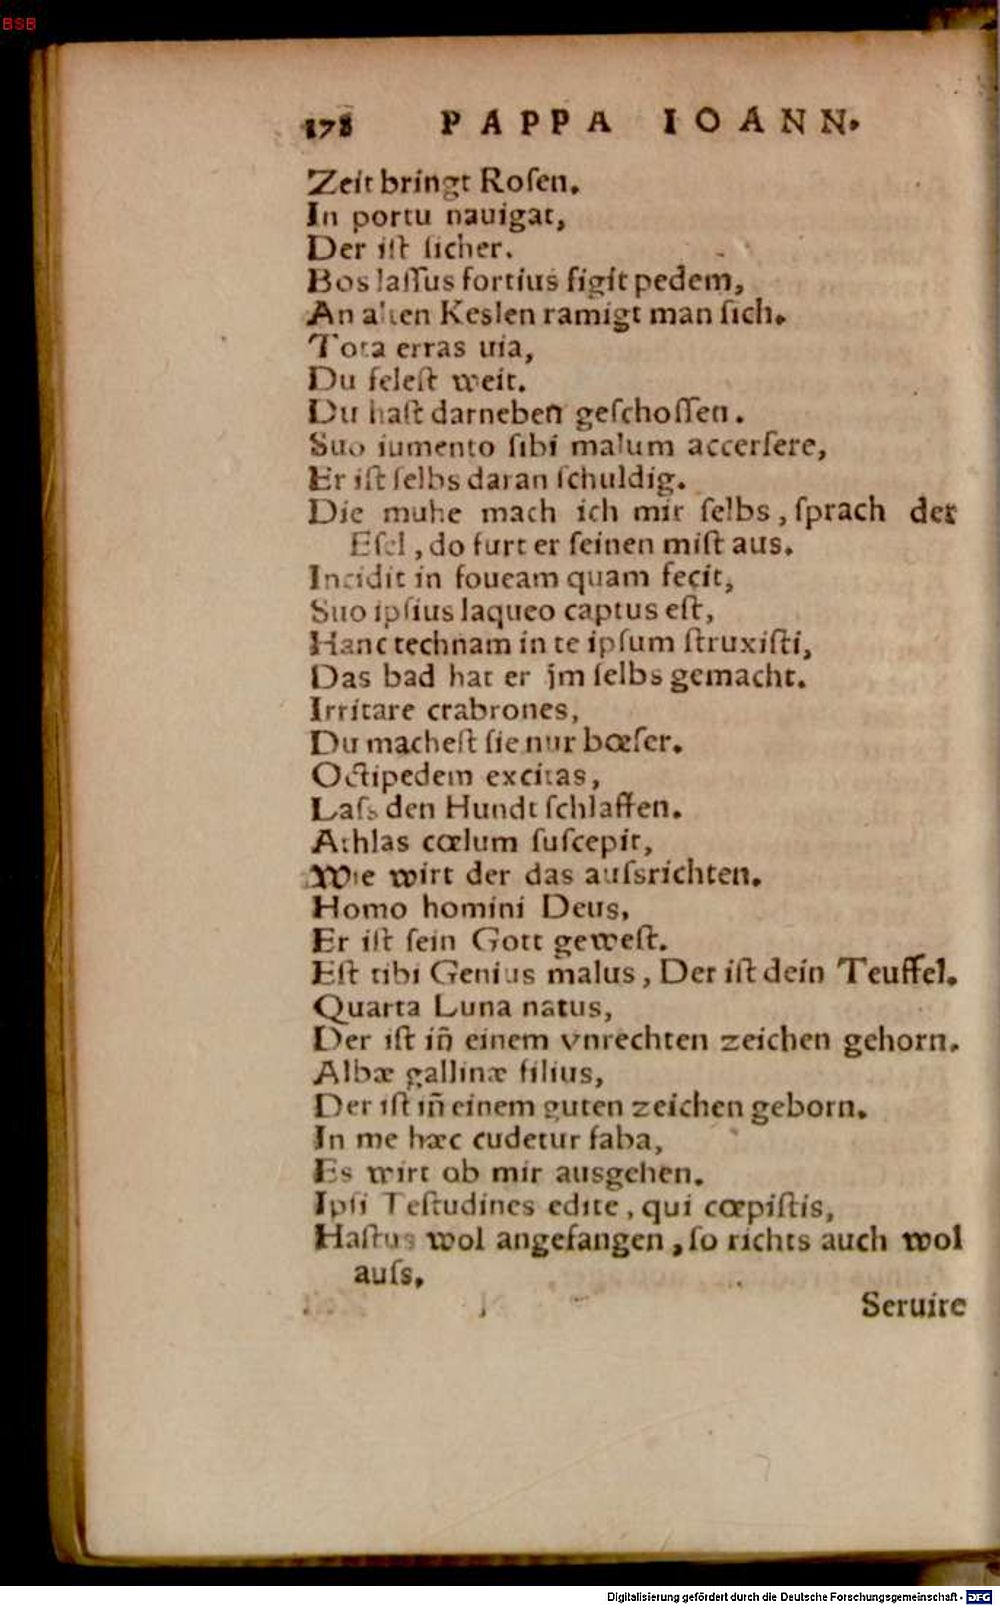 BSB
178 PAPPA IOANN.
Zeit bringt Roſen.
In portu nauigat,
Der iſt ſicher.
Bos laſſus fortius figit pedem,
An alten Keslen ramigt man ſich.
Tota erras uia,
Du feleſt weit.
Du haſt darneben geſchoſſen.
Suo iumento ſibi malum accerſere,
Er iſt ſelbs daran ſchuldig.
Die muhe mach ich mir ſelbs, ſprach der
Eſel, do furt er ſeinen miſt aus.
Incidit in foueam quam fecit,
Suo ipſius laqueo captus eſt,
Hanc technam in te ipſum ſtruxiſti,
Das bad hat er jm ſelbs gemacht.
Irritare crabrones,
Du macheſt ſie nur bœſer.
Octipedem excitas,
Laſs den Hundt ſchlaffen.
Athlas cœlum ſuſcepit,
Wie wirt der das auſsrichten.
Homo homini Deus,
Er iſt ſein Gott geweſt.
Eſt tibi Genius malus, Der iſt dein Teuffel.
Quarta Luna natus,
Der iſt iñ einem vnrechten zeichen gehorn.
Albæ gallinæ filius,
Der iſt iñ einem guten zeichen geborn.
In me hæc cudetur faba,
Es wirt ob mir ausgehen.
Ipſi Teſtudines edite, qui cœpiſtis,
Haſtus wol angefangen, ſo richts auch wol
auſs.
Seruire
Digitalisierung gefördert durch die Deutsche Forschungsgemeinschaft - DFG